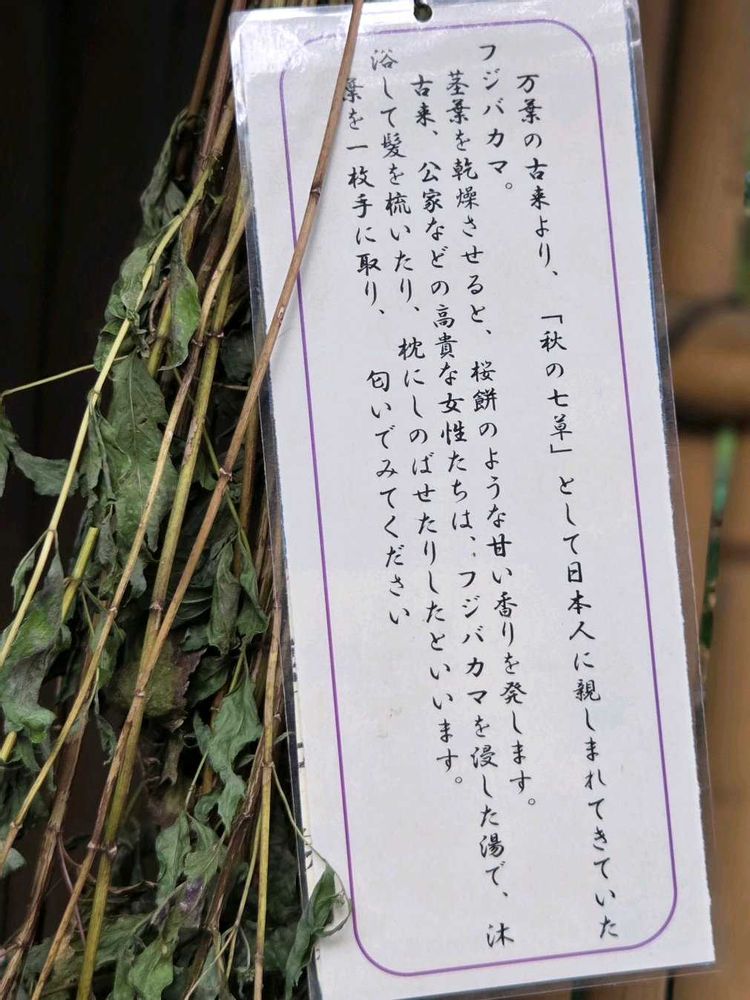 万葉の古来より、「秋の七草」として日本人に親しまれてきていた
フジバカマ。
茎葉を乾燥させると、桜餅のような甘い香りを発します。
古来、公家などの高貴な女性たちは、フジバカマを浸した湯で、沐
浴して髪を梳いたり、枕にしのばせたりしたといいます。
葉を一枚手に取り、匂いでみてください